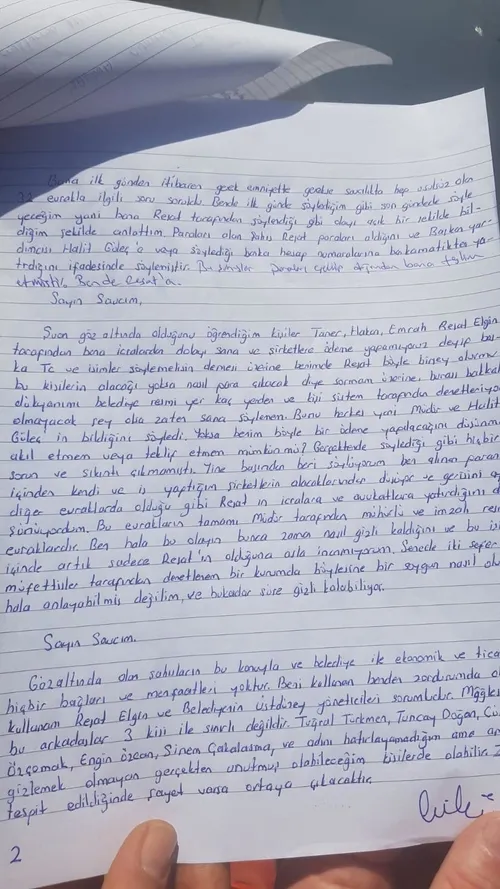 Bana ilk günden itibaren gerek emniyette gerekse savcılıkta hep usulsüz olan
evrakla ilgili soru soruldu. Bende ilk günde söylediğim gibi son günde söyle
yeceğim yani bana Reşat tarafından söylendiği gibi olayı açık bir şekilde bil-
diğim şekilde anlattım. Paraları alan şahıs Reşat paraları aldığını ve Başkan yar-
dımcısı Halit Güleç'e veya söylediği banka hesap numaralarına bakamatikten ya
tırdığını ifadesinde söylemiştir. Bu şahıslar paraları dışından bana teslim
etmiştir. Bende Reşat'a.
Sayın Savcım,
Şuan göz altında olduğunu öğrendiğim kişiler Taner, Hakan, Emrah Reşat Elgin
tarafından bana icralardan dolayı sana ve şirketlere ödeme yapamıyoruz deyip baş-
ka Tc ve isimler söylemelisin demesi üzerine benimde Reşat böyle birşey olurmu
bu kişilerin alacağı yoksa nasıl para çıkacak diye sormam üzerine burası bakkal
dükyanımı belediye resmi yer kaç yerden ve kişi sistem tarafından denetleniyor
olmayacak şey olsa zaten sana söylemem. Bunu herkes yeni Müdür ve Halit
Güleç in bildiğini söyledi. Yoksa benim böyle bir ödeme yapılacağını düşünme
akıl etmem veya teklif etmem mümkün mü? Gerçektende söylediği gibi hiçbir
sorun ve sıkıntı çıkmamıştı. Yine başından beri söylüyorum ben alınan paranın
içinden kendi ve iş yaptığım şirketlerin alacaklarından düşüp ve gerisini
diğer evraklarda olduğu gibi Reşat ın icralara ve avukatlara yatırdığını
sanıyordum. Bu evrakların tamamı Müdür tarafından mühürlü ve imzalı resmi
evraklardır. Ben hala bu olayın bunca zaman nasıl gizli kaldığını ve bu işin
içinde artık sadece Reşat'ın olduğuna asla inanmıyorum. Senede iki sefer
müfettişler tarafından denetlenen bir kurumda böylesine bir soygun nasıl olur
hala anlayabilmiş değilim, ve bukadar süre gizli kalabiliyor.
Sayın Savcım.
Gözaltında olan şahısların bu konuyla ve belediye ile ekonomik ve ticari
hiçbir bağları ve menfaatleri yoktur. Beni kullanan benden zordurumda
kullanan Reşat Elgin ve Belediyenin üstdüzey yöneticileri sorumludur.
bu arkadaşlar 3 kişi ile sınırlı değildir. Tuğral Türkmen, Tuncay Doğan,
Özçomak, Engin Özcan, Sinem Çakalasma, ve adını hatırlayamadığım ama
gizlemek olmayan gerçekten unutmuş olabileceğim kişilerde olabilir.
tespit edildiğinde şayet varsa ortaya çıkacaktır.
2